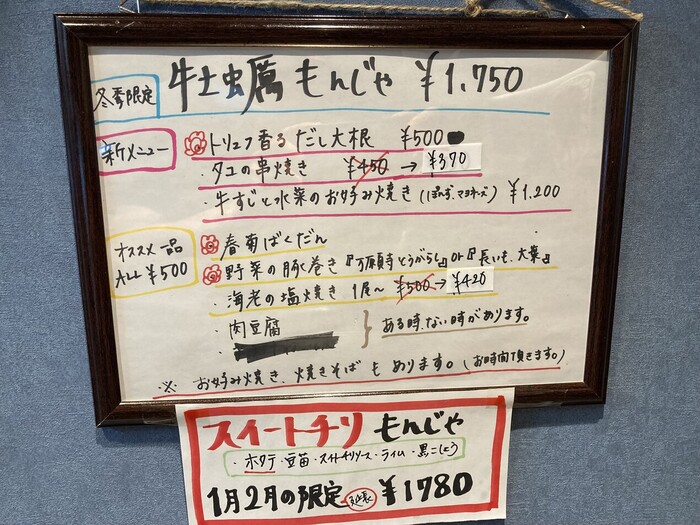 冬季限定 牡蠣 もんじゃ ¥1,750
新メニュー
トリュフ香る だし大根 ¥500
・タコの串焼き ¥450 → ¥370
・牛すじと水菜のお好み焼き (ぽんず、マヨネーズ) ¥1,200
オススメ一品 ALL ¥500
春菊ばくだん
野菜の豚巻き『万願寺とうがらし』or『長いも、大葉』
・海老の塩焼き 1尾〜 ¥500 → ¥420
・肉豆腐
ある時、ない時があります。
※ お好み焼き、焼きそばもあります。(お時間頂きます。)
スイートチリ もんじゃ
・ホタテ・豆苗・スイートチリソース・ライム・黒こしょう
1月2月の限定 延長 ¥1780